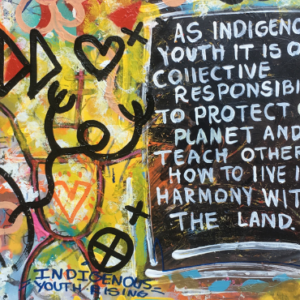 AS INDIGENO
YOUTH IT IS O
COllECTIVE
RESPONSIBI
TO PROTECT
PLANET AND
TEACH OTHER
HOW TO LIVE I
HARMONY WIT
THE LAND.
INDIGENOUS
YOUTH RISING